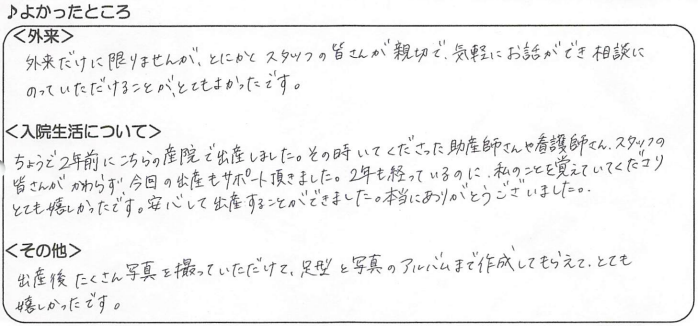 ♪よかったところ
<外来>
外来だけに限りませんが、とにかくスタッフの皆さんが親切で、気軽にお話ができ相談に
のっていただけることが、とてもよかったです。
<入院生活について>
ちょうど2年前にこちらの産院で出産しました。その時いてくださった助産師さんや看護師さん、スタッフの
皆さんがかわらず、今回の出産もサポート頂きました。2年も経っているのに、私のことを覚えていてくださり
とても嬉しかったです。安心して出産することができました。本当にありがとうございました。
<その他>
出産後たくさん写真を撮っていただけて、足型と写真のアルバムまで作成してもらえて、とても
嬉しかったです。